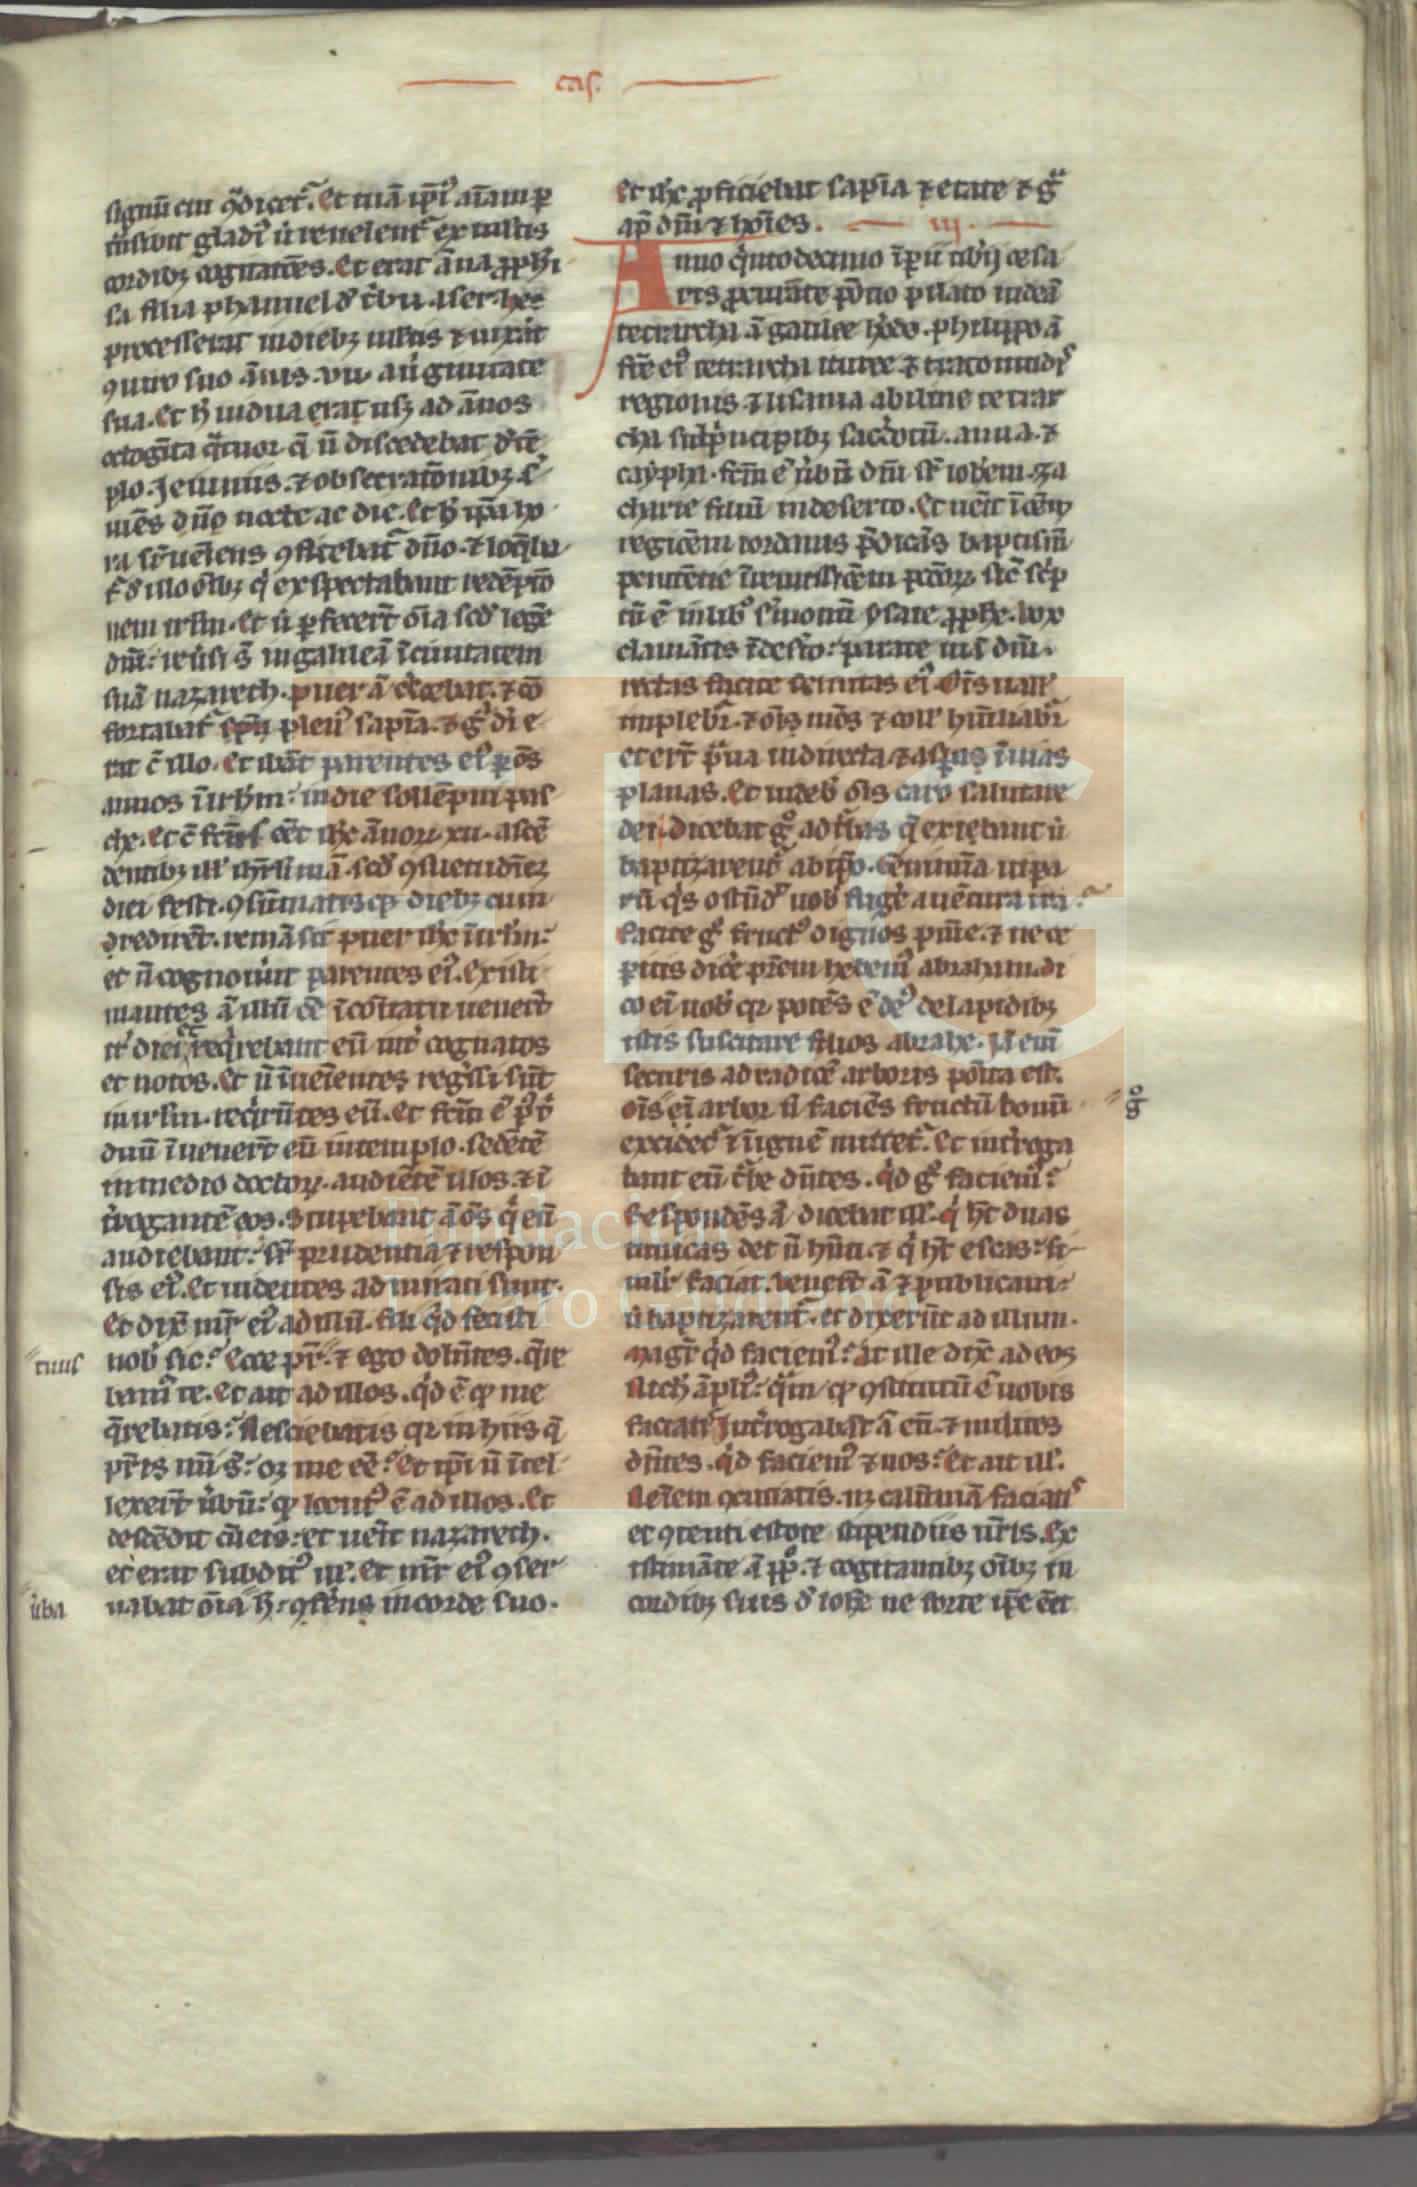 cas.
signũ cui ꝯ̃dicet᷑. Et tuã ip̃iꝰ aĩam ꝑ
tñsibit gladiꝰ ut̉ reuelent᷑ ex multis
cordibꝫ cogitat̃oes. Et erat ãna ꝓph̃i
sa filia phanuel d̉ t̉bu aser. hec
processerat in diebꝫ multis ⁊ uix̃at
cũ uiro suo ãnis .vii. a ũginitate
sua. Et h̉ uidua erat usqꝫ ad ãnos
octogĩta q̃tuor q̃ ñ discedebat d̉ tẽ
plo. Jeiuniis ⁊ obsecrat̃onibꝫ s̉
uiẽs dñ̃o nocte ac die. et h̉ ip̃a ho
ra suꝑueñiens ꝯfitebat᷑ dñ̃o. ⁊ loq̃ba
t᷑ d̉ illo oĩbꝫ q̉ exspectabant redẽpt̃o
nem irlm̃. Et ut̉ ꝑfecer̃t oĩa scd̃m legẽ
dñi: reũsi s̃ in galileã ĩ ciuitatem
suã nazareth. puer ã cr̉cebat. ⁊ cõ
fortabat᷑ plenꝰ sapĩa. ⁊ gr̃a dei e
rat ĩ illo. et ibãt parentes eiꝰ ꝑ oẽs
annos ĩ irlm̃: in die sollẽpni pas
che. Et c̃ fc̃us eẽt ih̃c ãnoꝝ .xii. ascẽ
dentibꝫ ill' ih̃rlimã scd̃m ꝯsuetudĩem
diei festi. ꝯsũmatisqꝫ diebꝫ cum
redirẽt. remãsit puer ih̃c ĩ irlm̃:
et ñ cognouer̃t parentes eiꝰ. Existi
mantes ã illũ eẽ ĩ comitatu uener̃t
it' diei ⁊ req̉rebant eũ int' cognatos
et notos. et ñ ĩueñientes reg̃ssi sũt
in irlm̃. req̉rẽtes eũ. et fc̃m ẽ pꝰ t̉
duũ ĩuener̃t eũ in templo. sedẽtẽ
in medio doctoꝝ. audiẽtẽ illos. ⁊ ĩ
t̉rogantẽ eos. stupebant ã oẽs q̉ eũ
audiebant: sr̃ prudentia ⁊ respon
sis eiꝰ. Et uidentes admirati sunt.
et dix̃ mr̃ eiꝰ ad illũ. fili q̉d fecisti
nob̉ sic? Ecce pr̃ ⁊ ego dolẽtes. q̃re
bamꝰ te. et ait ad illos. q̉d ẽ qꝫ me
q̃rebatis? Nesciebatis qꝫ in hiis q̃
pr̃is mei s̃: oꝫ me eẽ? et ip̃i ñ ĩtel
lexer̃t ũbũ: qꝫ locutꝰ ẽ ad illos. et
descẽdit cũ eis: et uẽit nazareth.
et erat subditꝰ ill'. et mr̃ eiꝰ ꝯser
uabat oĩa h̉ ꝯfer̃ns in corde suo.
tuus
ũba
Et ih̃c ꝓficiebat sapĩa ⁊ etate ⁊ gr̃a
ap̃ dm̃ ⁊ hoĩes. iij.
Anno q̉ntodecimo ĩꝑii tib̉ij cesa
ris ꝓcurãte põtio pilato iudeã
tetrarcha ã galilee h̉ode. philippo ã
fr̃e eiꝰ tetrarcha ituree ⁊ traconitidis
regionis ⁊ lisania abiline tetrar
cha sub p̉ncipibꝫ sac̉dotũ. anna ⁊
caypha. fc̃m ẽ ũbũ dñi sr̃ ioh̃em za
charie filiũ in deserto. et uẽit ĩ oẽm
regiõem iordanis p̃dicãs baptismũ
penitẽtie ĩ remissiõem pc̃coꝝ sic̃ sc̃p
tũ ẽ in libro sermonũ ysaie ꝓph̃e. uox
clamãtis ĩ deserto: parate uiã dñi.
rectas facite semitas eiꝰ. Oĩs uall'
implebit᷑. ⁊ oĩs mõs ⁊ coll' hũiliabit᷑
et er̃t p̃ua in directa ⁊ aspera ĩ uias
planas. Et uideb̉ oĩs caro salutare
dei. dicebat gͦ ad t̉bas q̃ exiebant ut̉
baptizarent᷑ ab ip̃o. Genimĩa uipa
rũ q̉s ostẽdit uob̉ fug̉e a uẽtura ira?
facite gͦ fructꝰ dignos pnĩe. ⁊ ne ce
ꝑitis dic̉e pr̃em habemꝰ abraham. di
co eĩ uob̉ qꝫ potẽs ẽ deꝰ de lapidibꝫ
istis suscitare filios abrahe. iã enĩ
securis ad radicẽ arboris põita est.
oĩs eĩ arbor ñ faciẽs fructũ bonũ
excidet᷑ ⁊ ĩ ignẽ mittet᷑. et int̉roga
bant eũ t̉be dñtes. q̉d gͦ faciemꝰ?
Respondẽs ã dicebat ill'. q̉ hẽt duas
tunicas det ñ hñti. ⁊ q̉ hẽt escas: si
milit̉ faciat. Venert̃ ã ⁊ publicani:
ut̉ baptizarent᷑. et dixerũt ad illum.
magr̃ q̉d faciemꝰ? at ille dix̃ ad eos
Nich̉ ãpliꝰ: q̃m qꝫ ꝯstitutũ ẽ uobis
faciatis. Jnt̉rogabãt ã eũ. ⁊ milites
dñtes. q̉d faciemꝰ ⁊ nos? et ait ill'.
Neĩem ꝯcutiatis. nꝫ calũpniã faciatis
et ꝯtenti estote stipendiis ũris. Ex
istimãte ã ppl̃o. ⁊ cogitantibꝫ oĩbꝫ in
cordibꝫ suis d̉ ioh̃e ne forte ip̃e eẽt
gͦ
Fundación
Lázaro Galdiano